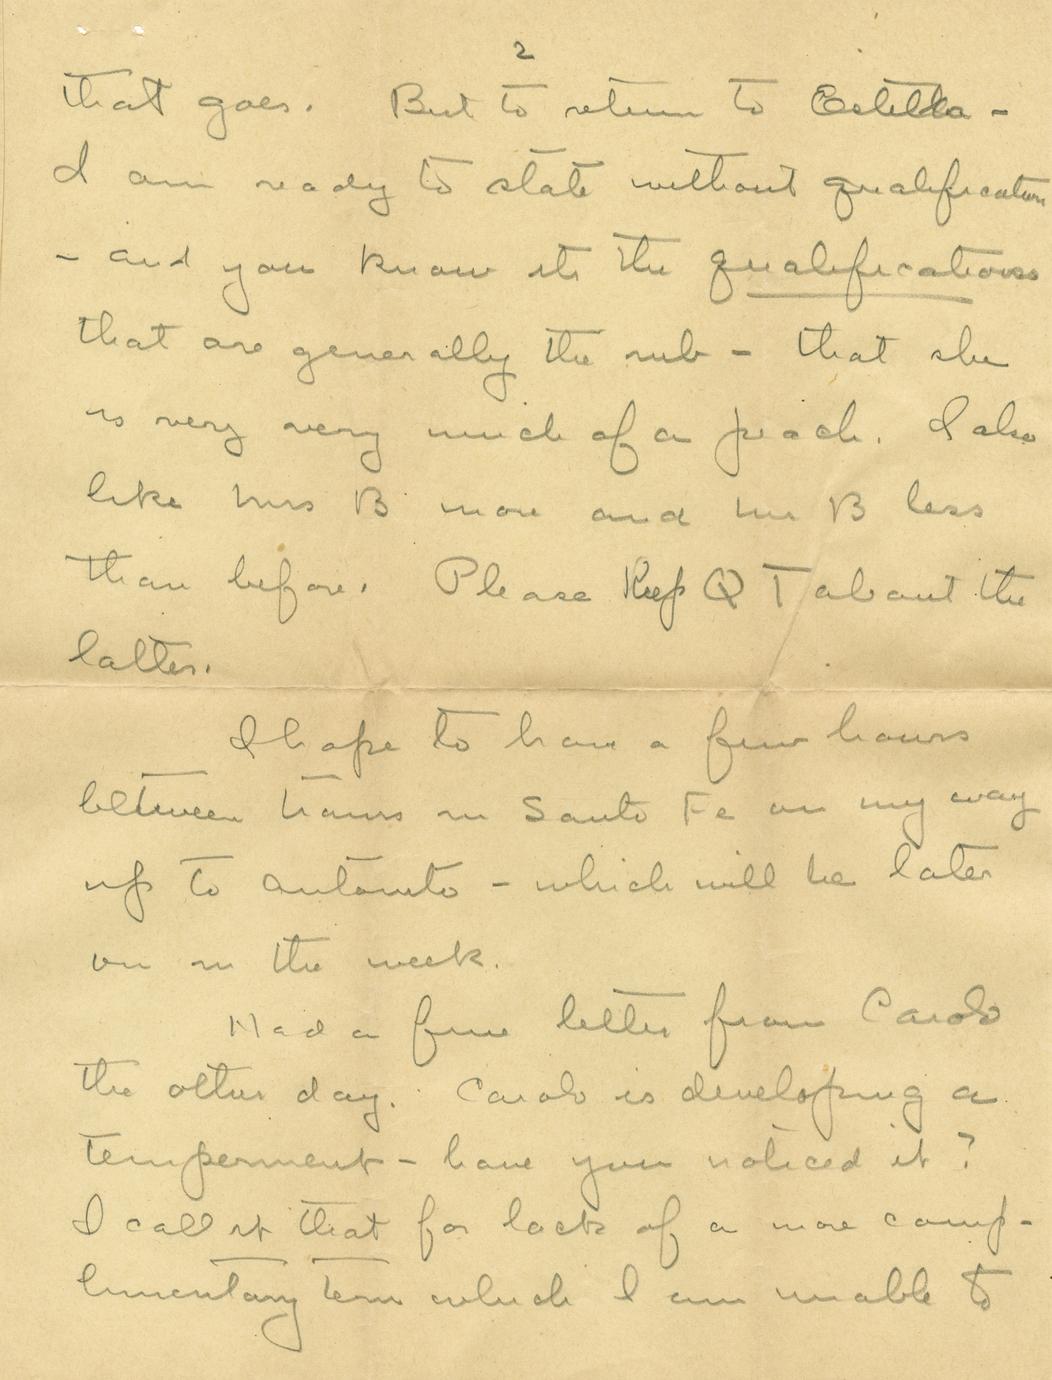 2
that goes. But to return to Estelda -
I am ready to state without qualification
- and you know its the qualifications
that are generally the rub - that she
is very very much of a peach. I also
like Mrs B more and Mr B less
than before. Please Keep Q T about the
latter.
I hope to have a few hours
between trains in Santa Fe on my way
up to Antonito - which will be later
on in the week.
Had a fine letter from Carol
the other day. Carol is developing a
temperment - have you noticed it?
I call it that for lack of a more comp-
limentary term which I am unable to